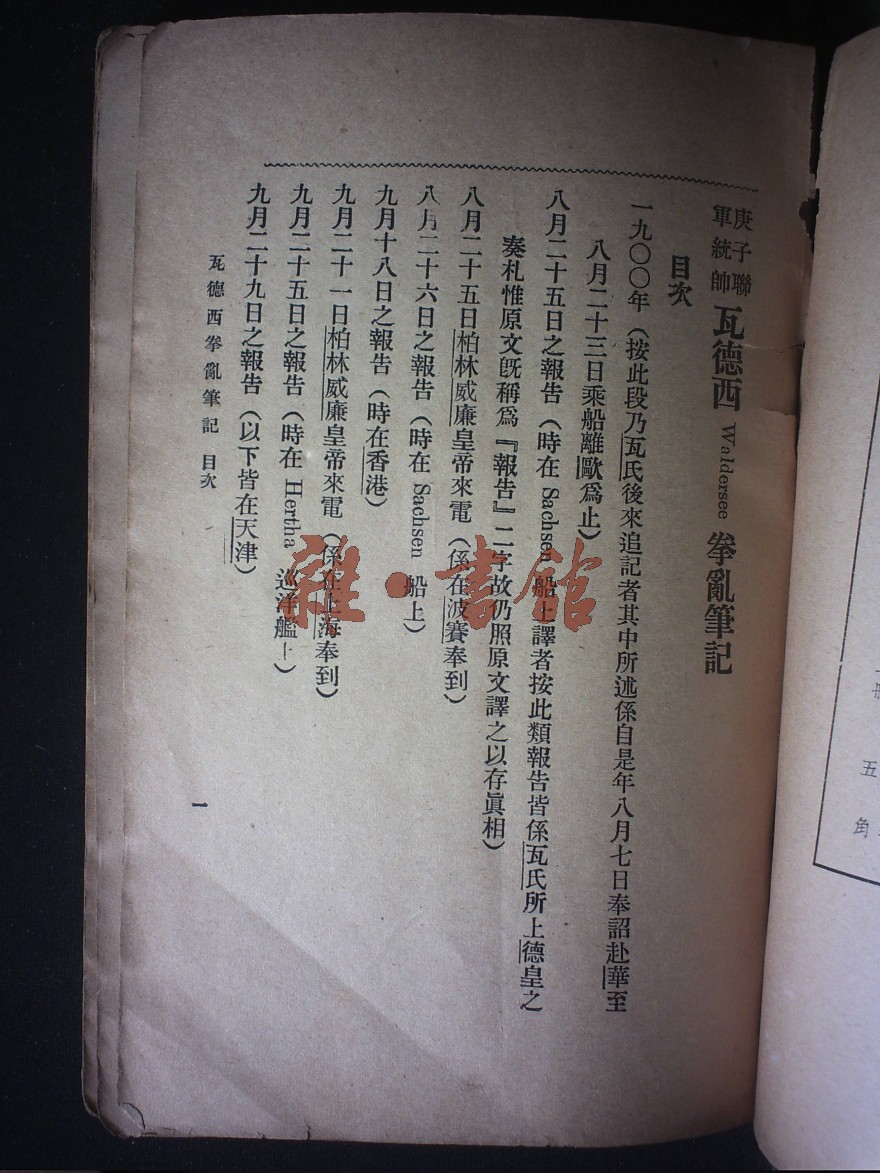 庚子聯軍統帥 瓦德西 Waldersee 拳亂筆記
目次
一九〇〇年（按此段乃瓦氏後來追記者其中所述係自是年八月七日奉詔赴華至
八月二十三日乘船離歐爲止）
八月二十五日之報告（時在 Sachsen 船上譯者按此類報告皆係瓦氏所上德皇之
奏札惟原文旣稱爲『報告』二字故仍照原文譯之以存眞相）
八月二十五日柏林威廉皇帝來電（係在波賽奉到）
八月二十六日之報告（時在 Sachsen 船上）
九月十八日之報告（時在香港）
九月二十一日柏林威廉皇帝來電（係在上海奉到）
九月二十五日之報告（時在 Hertha 巡洋艦上）
九月二十九日之報告（以下皆在天津）
瓦德西拳亂筆記 目次
一
五
角
雜·書館